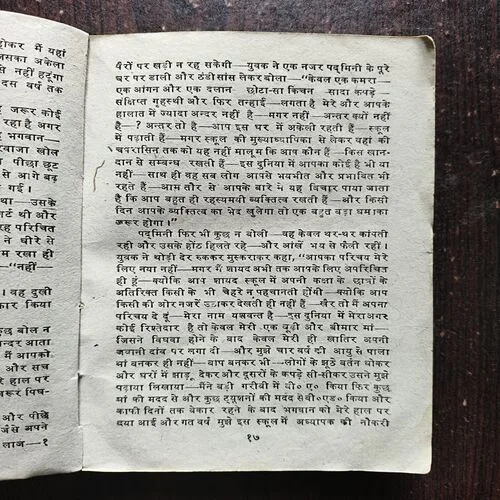 होकर मैं यहां
जिसका अकेला
से नहीं हटूंगा
दस वर्ष तक
जरूर कोई
रहा है अगर
भगवान—
दरवाजा खोल
पीछा छूट
से आगे बढ़
गई।
था— उसके
र्ट थी और
रह परिचित
ने धीरे से
ाम रखा ही
—"नहीं—
। वह दुखी
कार किया
कुछ बोल न
अन्दर आता
मैं आपको
और सच
हाल पर
जरूर पिघ-
और पीछे
जैसे अपने
लाज—१
पैरों पर खड़ी न रह सकेगी—युवक ने एक नजर पद्मिनी के पूरे
घर पर डाली और ठंडी सांस लेकर बोला—"केवल एक कमरा—
एक आंगन और एक दलान— छोटा-सा किचन— सादा कपड़े—
संक्षिप्त गृहस्थी और फिर तन्हाई—लगता है मेरे और आपके
हालात में ज्यादा अन्दर नहीं है—मगर नहीं—अन्तर क्यों नहीं
है—? अन्तर तो है—आप इस घर में अकेली रहती हैं—स्कूल
में पढ़ाती हैं—मगर स्कूल की मुख्याध्यापिका से लेकर यहां की
चपरासिइ तक को यह नहीं मालूम कि आप कौन हैं— किस खान-
दान से सम्बन्ध रखती हैं—इस दुनिया में आपका कोई है भी या
नहीं—साथ ही वह सब लोग आपसे भयभीत और प्रभावित भी
रहते हैं—आम तौर से आपके बारे में यह विचार पाया जाता
है कि आप बहुत ही रहस्यमयी व्यक्तित्व रखती हैं—और किसी
दिन आपके व्यक्तित्व का भेद खुलेगा तो एक बहुत बड़ा धमाका
जरूर होगा।"
पद्मिनी फिर भी कुछ न बोली—वह केवल थर-थर कांपती
रही और उसके होंठ हिलते रहे—और आंखें भय से फैली रहीं।
युवक ने थोड़ी देर रुककर मुस्कराकर कहा, "आपका परिचय मेरे
लिए नया नहीं—मगर मैं शायद अभी तक आपके लिए अपरिचित
ही हूं—क्योंकि आप शायद स्कूल में अपनी कक्षा के छात्रों के
अतिरिक्त किसी के भी चेहरे न पहचानती होंगी—क्योंकि आप
किसी की ओर नजरें उठाकर देखती ही नहीं हैं—खैर तो मैं अपना
परिचय दे दूं—मेरा नाम यशवन्त है—इस दुनिया में मेरा अगर
कोई रिश्तेदार है तो केवल मेरी एक बूढ़ी और बीमार मां—
जिसने विधवा होने के बाद केवल मेरी ही खातिर अपनी
जवानी दांव पर लगा दी—और मुझे चार वर्ष की आयु से पाला
मां बनकर ही नहीं—बाप बनकर भी—लोगों के झूठे बर्तन धोकर
और घरों में झाड़ू देकर और दूसरों के कपड़े सी-सीकर उसने मुझे
पढ़ाया लिखाया—मैंने बड़ी गरीबी में बी० ए० किया फिर कुछ
मां की मदद से और कुछ ट्यूशनों की मदद से बी०एड० किया और
काफी दिनों तक बेकार रहने के बाद भगवान को मेरे हाल पर
दया आई और गत वर्ष मुझे इस स्कूल में अध्यापक की नौकरी
१७